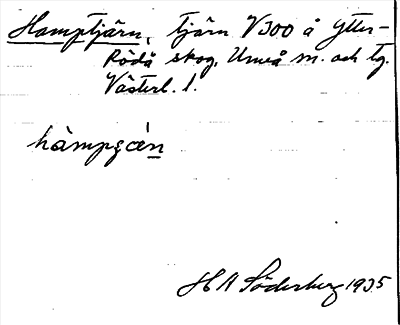 Hamptjärn, tjärn V300 å Ytter-
Rödå skog, Umeå sn. och tg.
Västerb. l.
H A Söderberg 1935